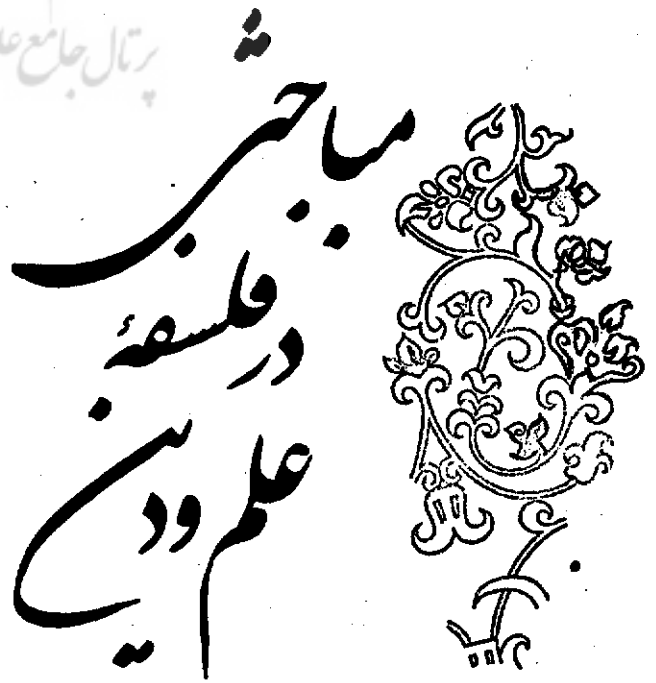 پرتال جامع علو
مباحثی
در فلسفهٔ
علم و دین